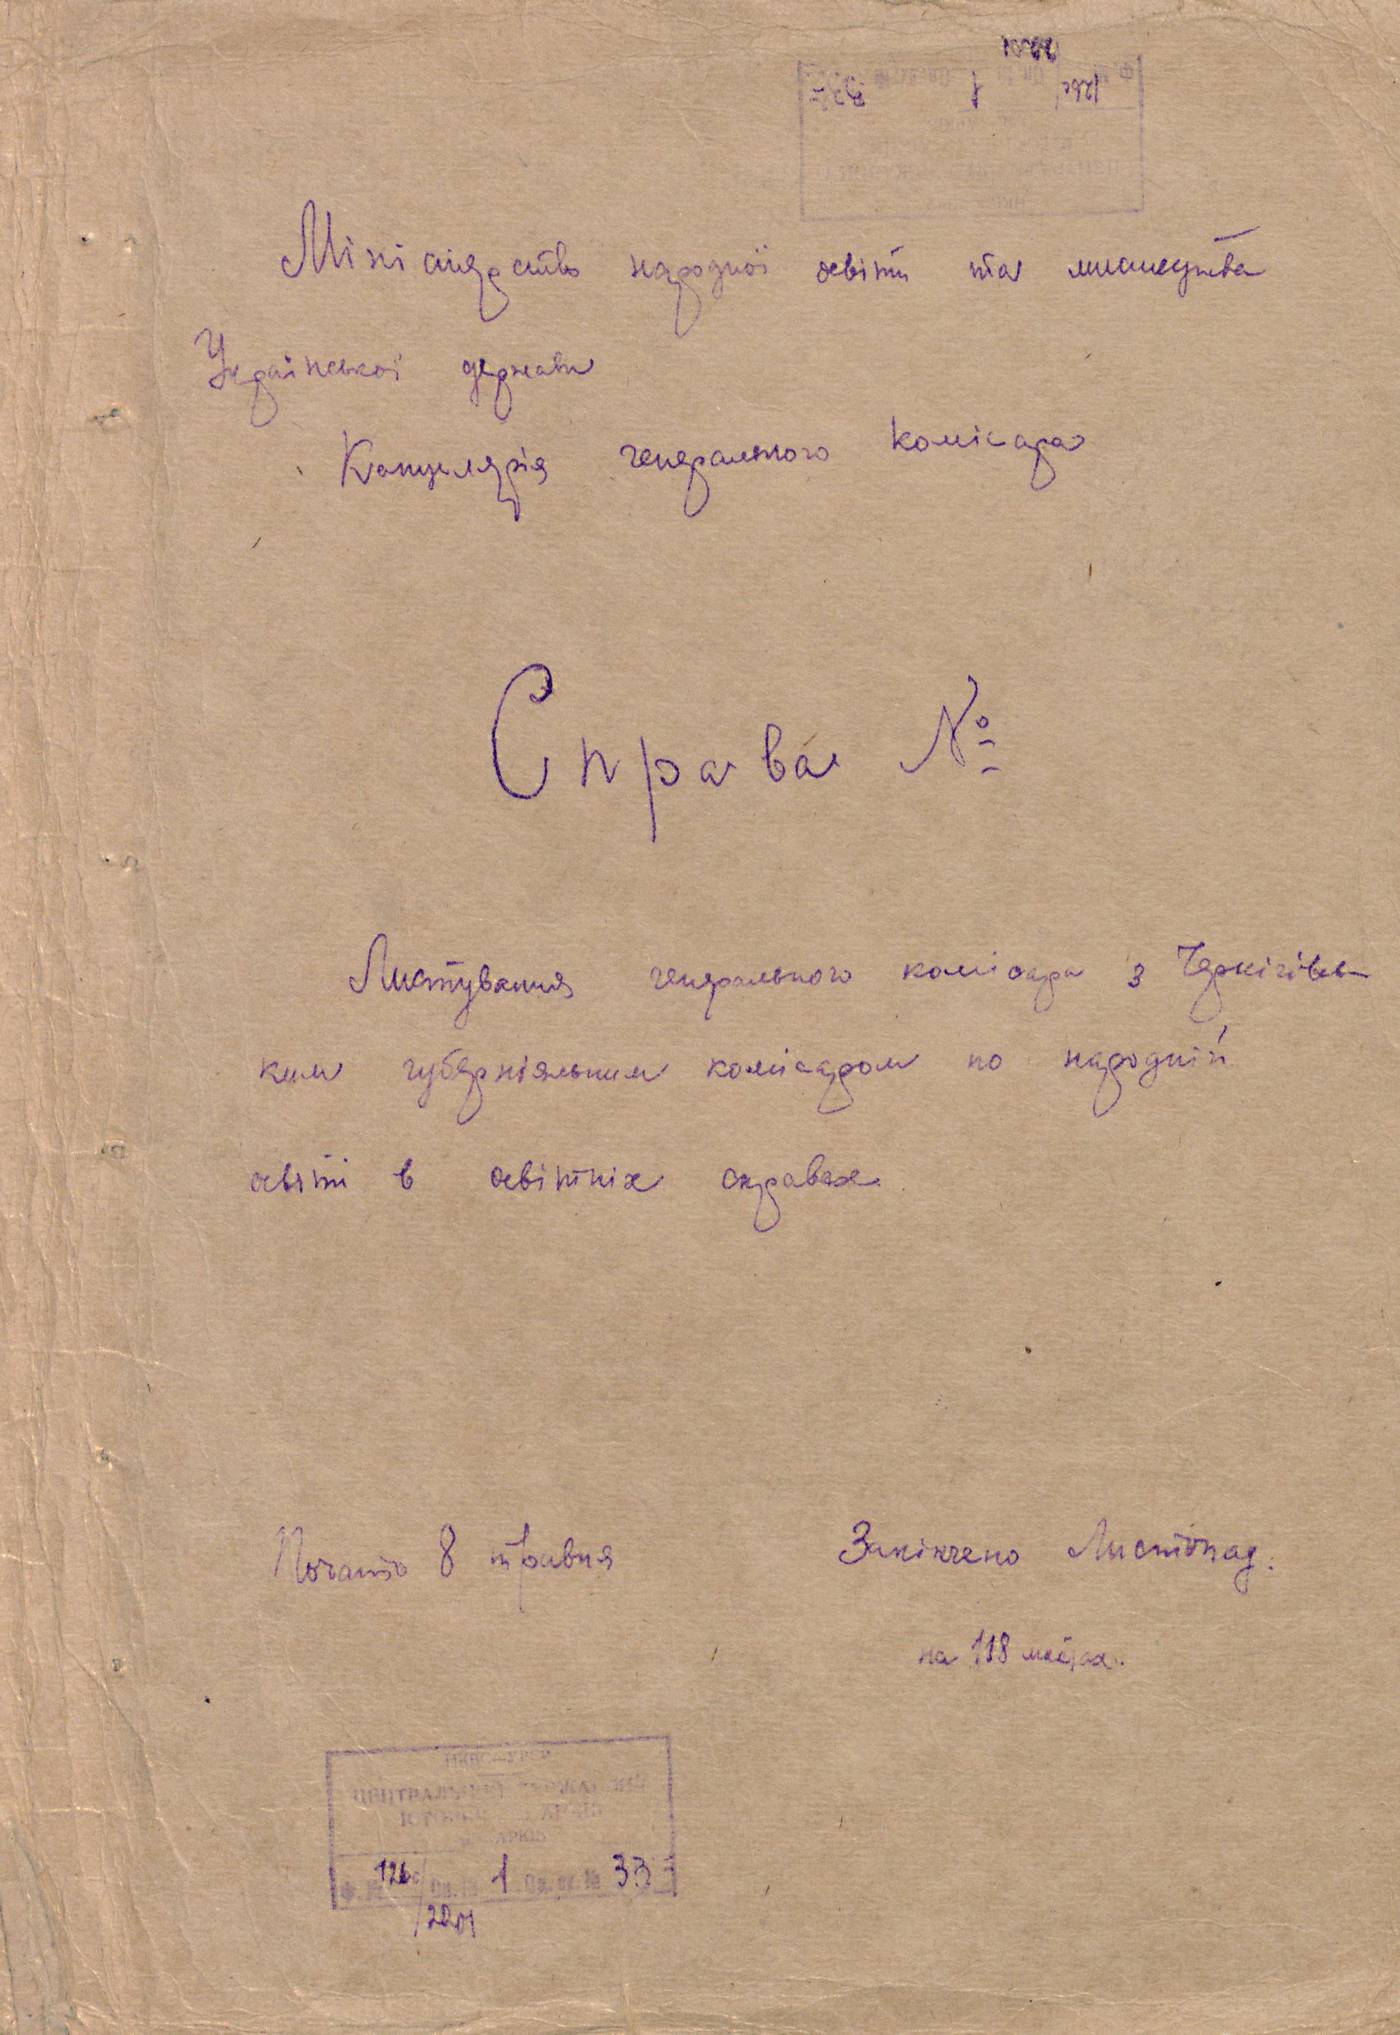 Міністерство народної освіти та мистецтва
Української держави
Канцелярія генерального комісара
Справа №
Листування генерального комісара з Чернігівсь-
ким губерніяльним комісаром по народній
освіті в освітніх справах.
Почато 8 травня
Закінчено Листопад.
на 118 листах.
НКВС УРСР
ЦЕНТРАЛЬНИЙ ДЕРЖАВНИЙ
АРХІВ
Ф. № 126с Оп. № 1 Од. зб. № 33
/2201